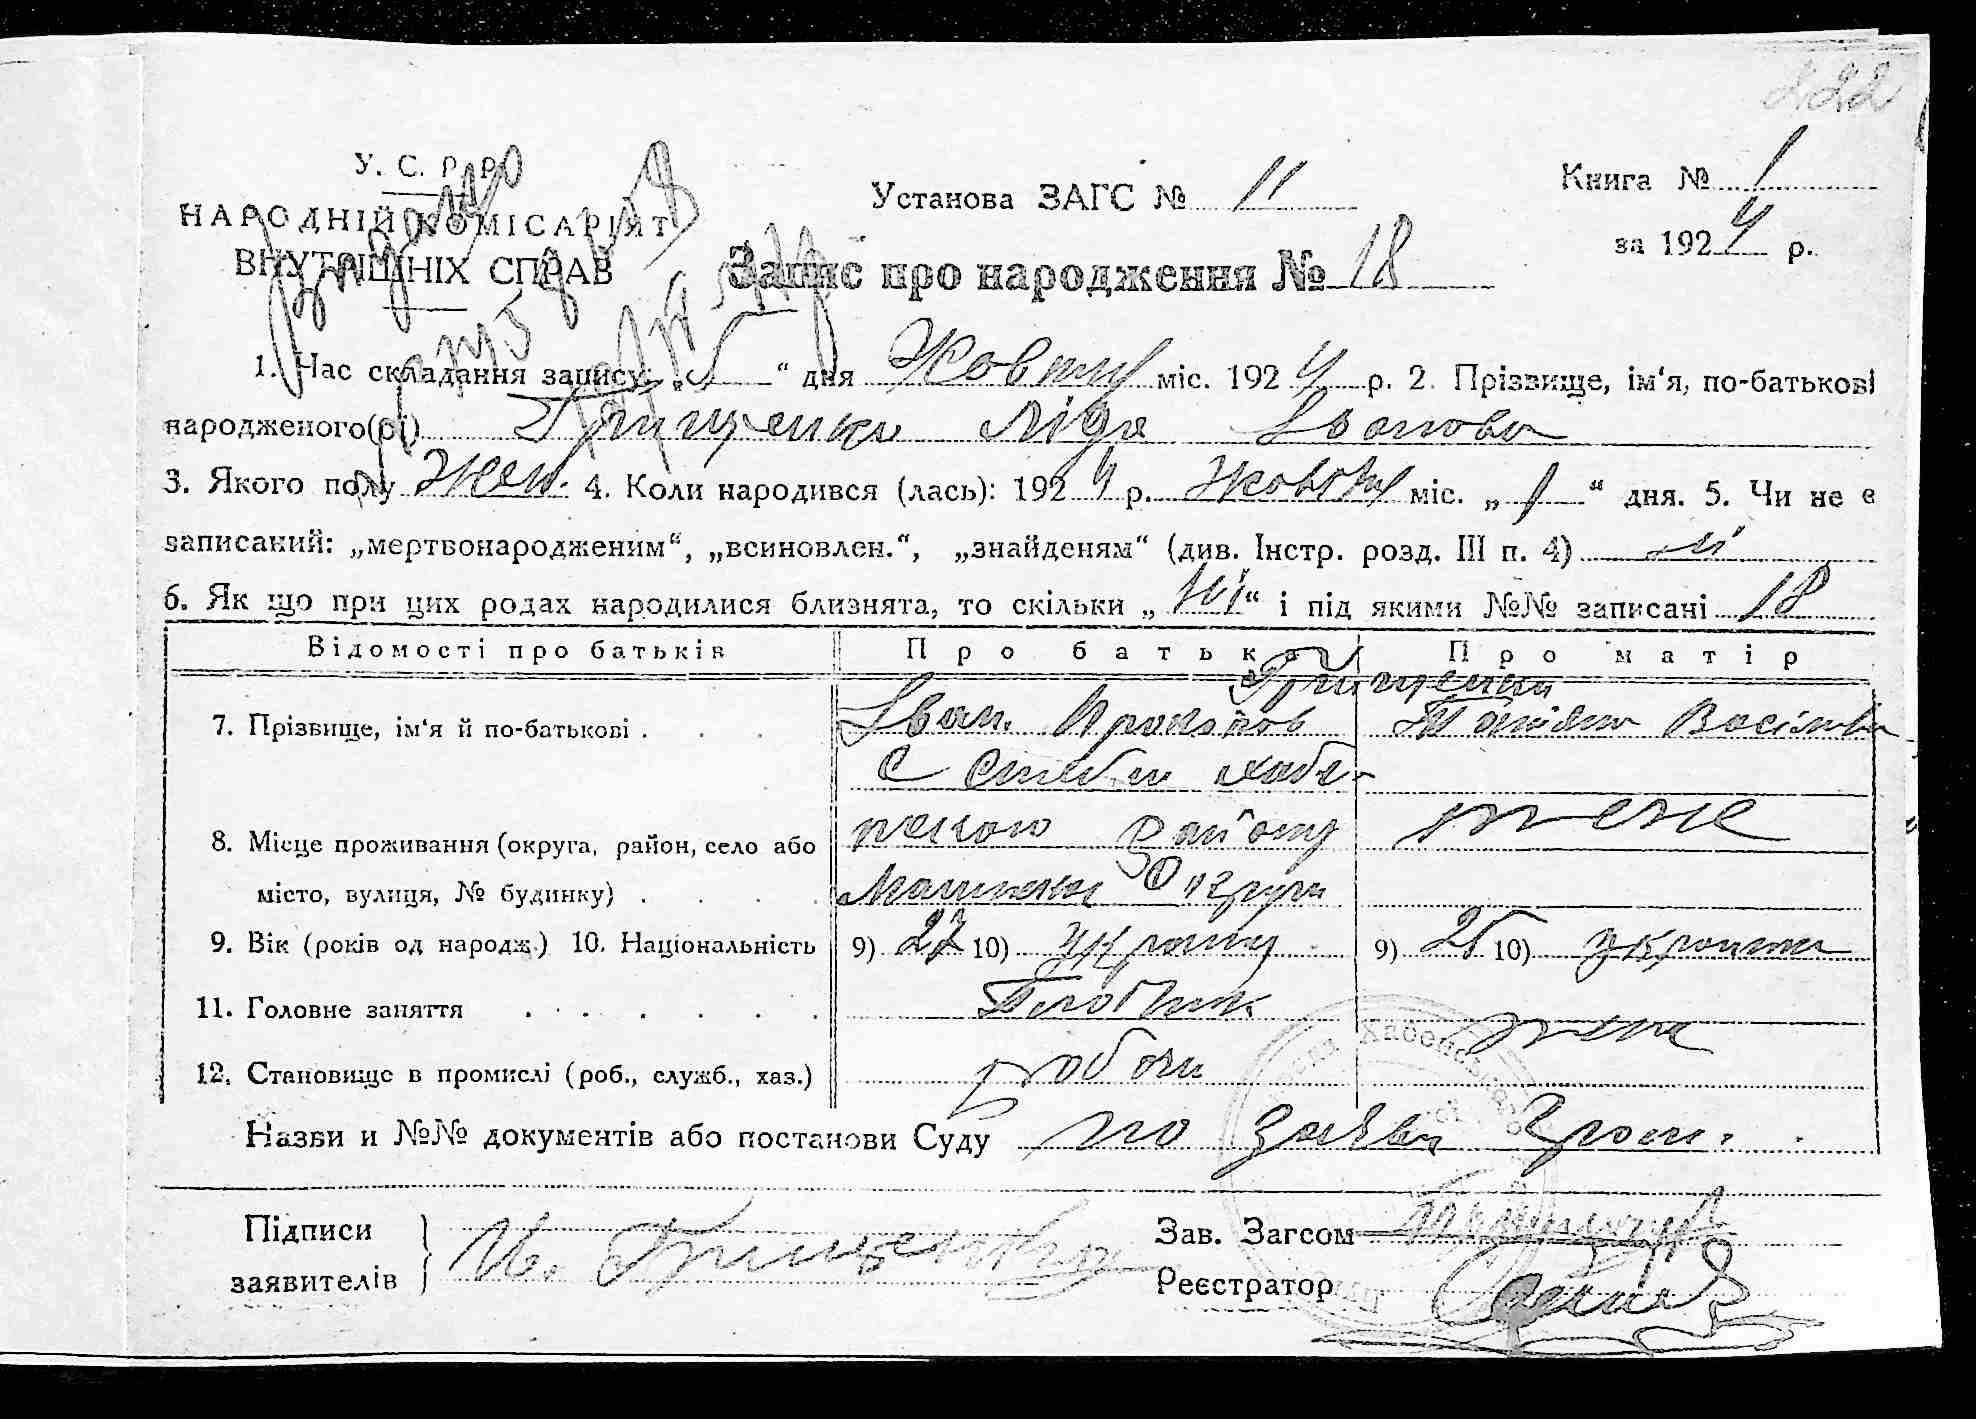 222
У. С. Р. Р.
НАРОДНІЙ КОМІСАРІЯТ
ВНУТРІШНІХ СПРАВ
Установа ЗАГС № 11
Книга № 1
за 1924 р.
Запис про народження № 18
1. Час складання запису: „5“ дня Жовтня міс. 1924 р. 2. Прізвище, ім‘я, по-батькові
народженого(рі) Грищенко Ліда Іванова
3. Якого полу Жен. 4. Коли народився (лась): 1924 р. Жовтня міс. „1“ дня. 5. Чи не є
записаний: „мертвонародженим“, „всиновлен.“, „знайденям“ (див. Інстр. розд. III п. 4) ні
6. Як що при цих родах народилися близнята, то скільки „Ні“ і під якими №№ записані 18
Відомості про батьків Про батька Про матір
Грищенки
7. Прізвище, ім‘я й по-батькові . . . Іван Прокопов Татіяна Васільова
8. Місце проживання (округа, район, село або
місто, вулиця, № будинку) . . . .
району теже
Округи
9. Вік (років од народж.) 10. Національність 9) 27 10) украінц 9) 25 10) украінка
11. Головне заняття . . . . . . . Плотник
12. Становище в промислі (роб., служб., хаз.) робочи
Назви и №№ документів або постанови Суду по заяви гром.
Підписи
заявителів И. Грищенко
Зав. Загсом
Реєстратор